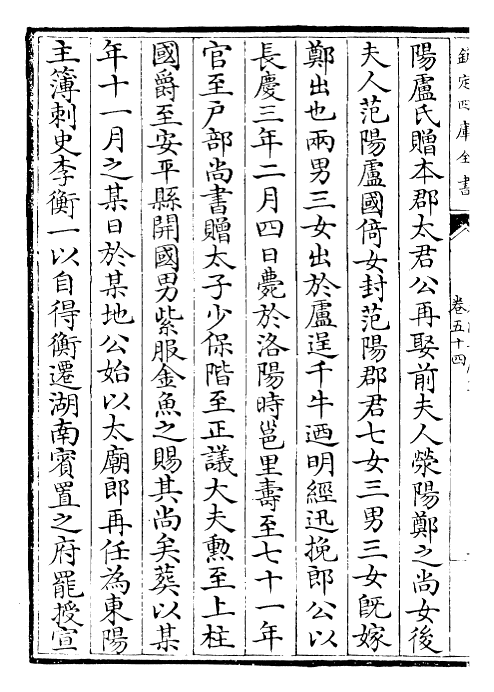 欽定四庫全書
卷五十四
陽盧氏贈本郡太君公再娶前夫人滎陽鄭之尚女後
夫人范陽盧國倚女封范陽郡君七女三男三女既嫁
鄭出也兩男三女出於盧逞千牛迺明經迅挽郎公以
長慶三年二月四日薨於洛陽時邕里壽至七十一年
官至户部尚書贈太子少保階至正議大夫勲至上柱
國爵至安平縣開國男紫服金魚之賜其尚矣葬以某
年十一月之某日於某地公始以太廟郎再任為東陽
主簿刺史李衡一以自得衡遷湖南賓置之府罷授宣